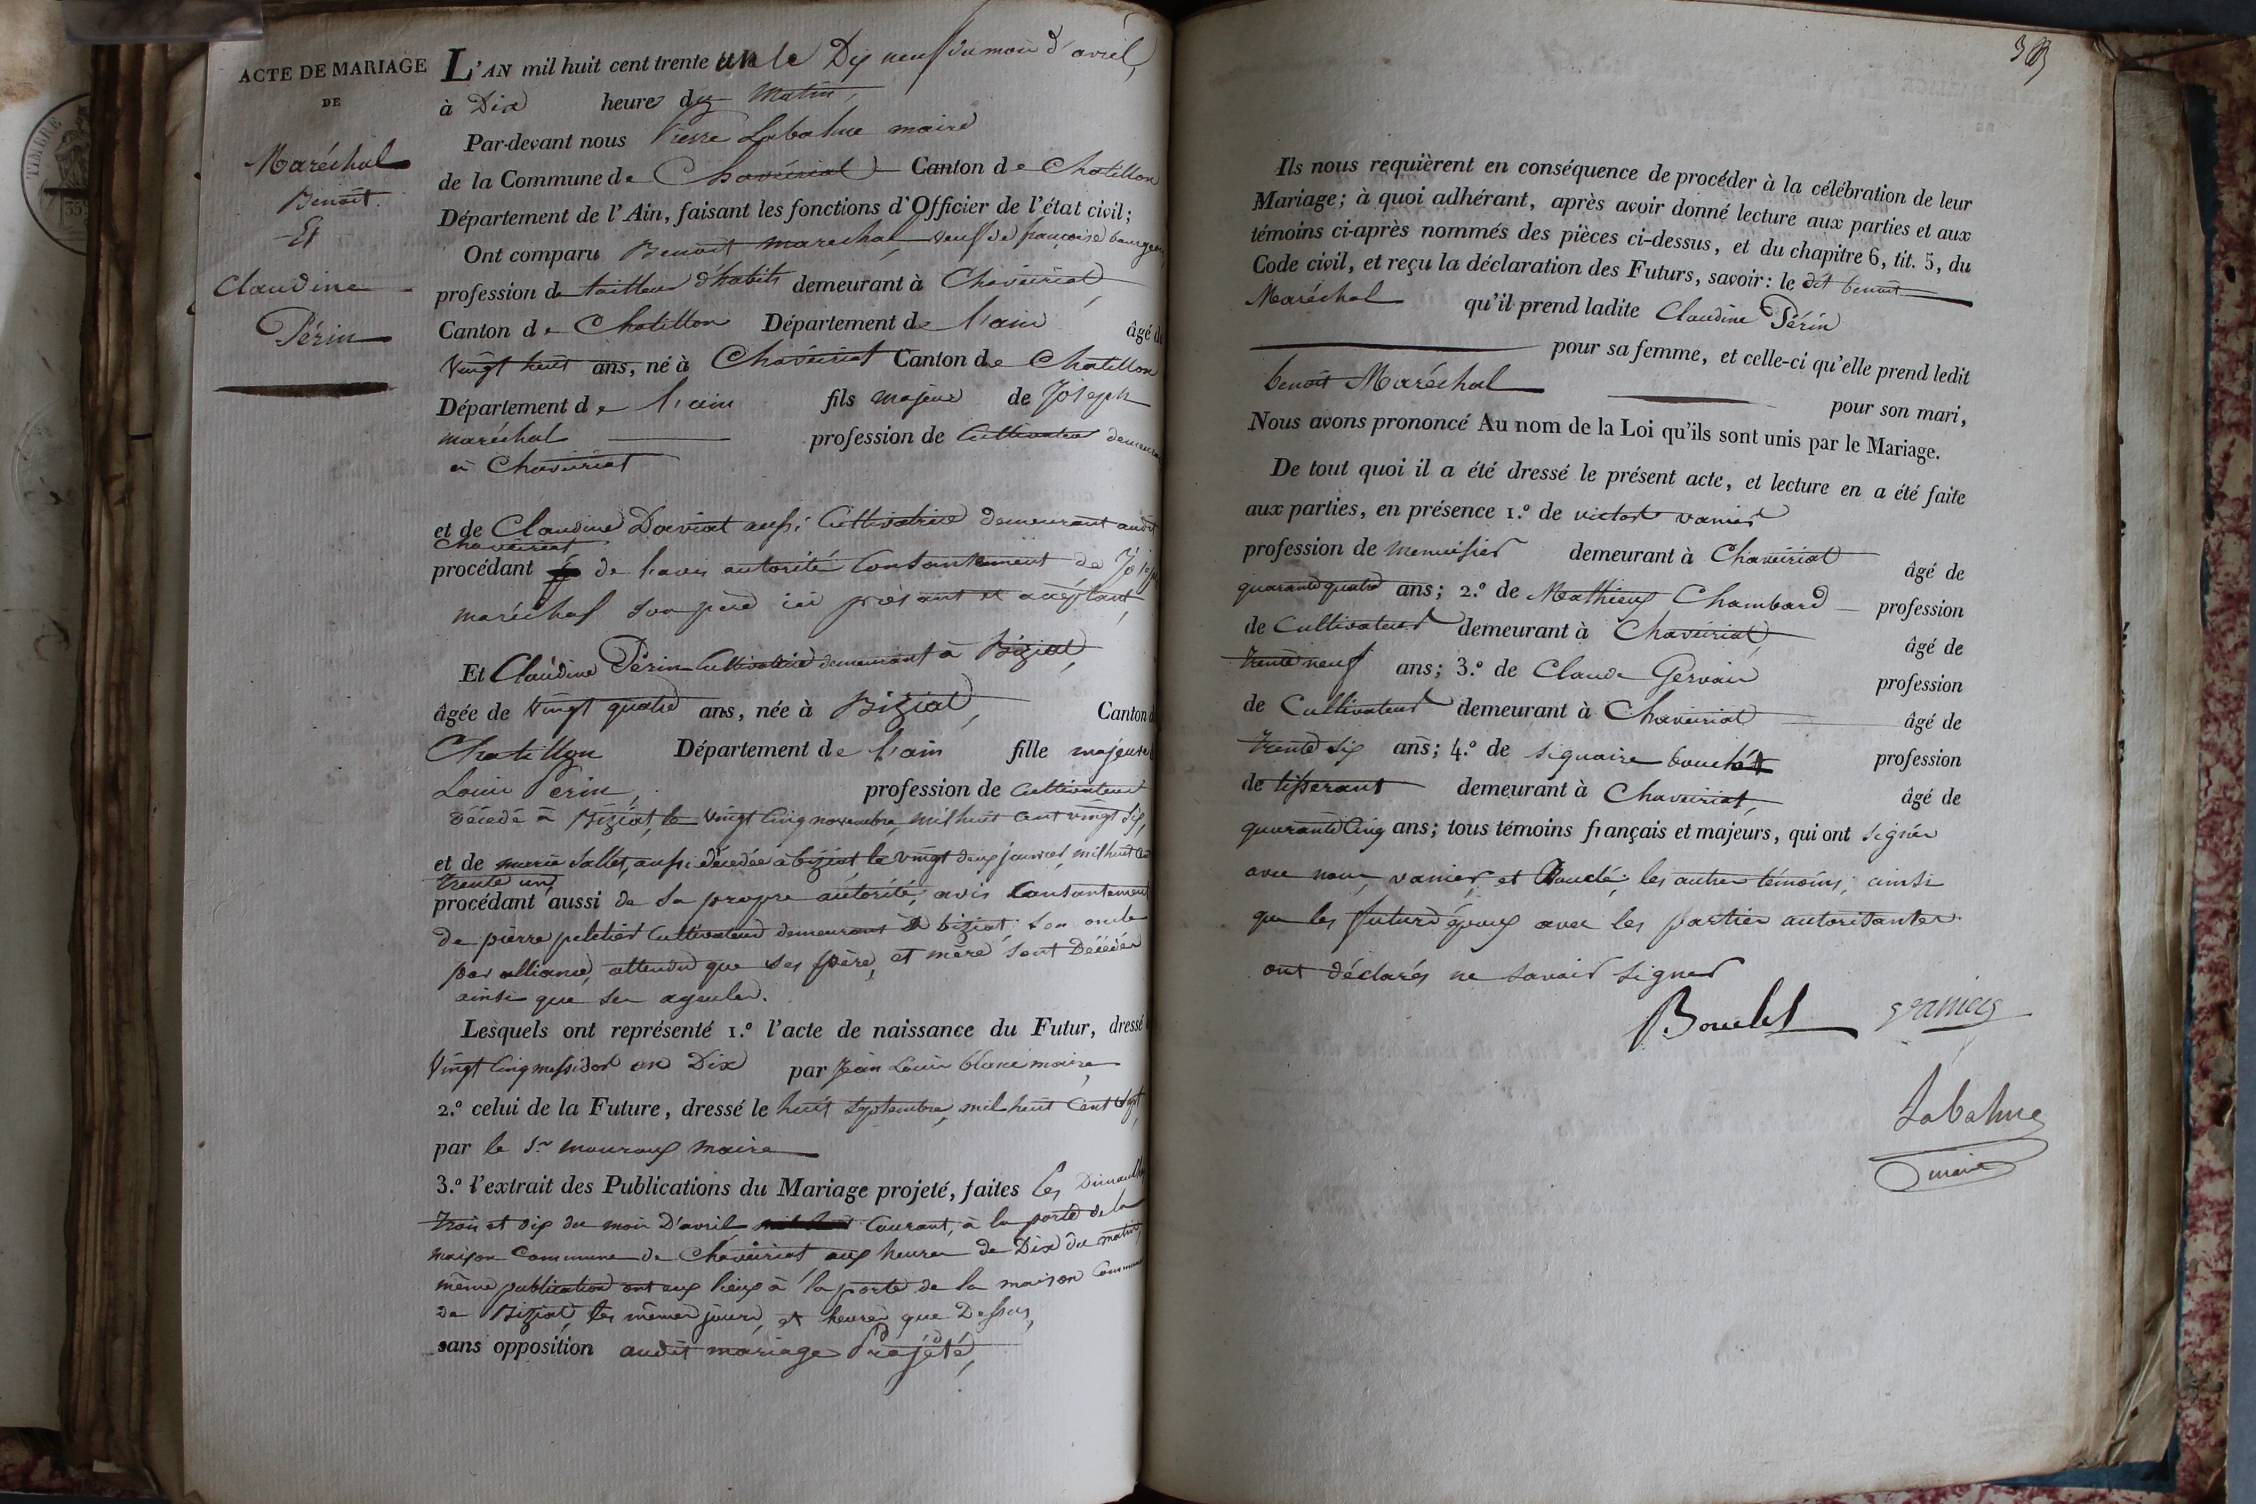 ACTE DE MARIAGE
DE
Maréchal
Benoit
Et
Claudine
Périn
L'AN mil huit cent trente un le Dix neuf du mois d'avril,
à Dix heures du matin,
Par-devant nous Pierre Labatue maire
de la Commune de Chaveiriat Canton de Chatillon
Département de l'Ain, faisant les fonctions d'Officier de l'état civil;
Ont comparu Benoit marechal, veuf de françoise bourgeon,
profession de tailleur d'habits demeurant à Chaveiriat,
Canton de Chatillon Département de l'ain âgé de
vingt huit ans, né à Chaveiriat Canton de Chatillon
Département de l'ain fils majeur de Joseph
maréchal profession de Cultivateur demeurant
à Chaveiriat
et de Claudine Daviat aussi Cultivatrice demeurant audit
Chaveiriat
procédant de l'avis autorité Consantement de Joseph
maréchal son père ici présant et acéptant,
Et Claudine Périn Cultivatrice demeurant à Biziat,
âgée de vingt quatre ans, née à Biziat, Canton de
Chatillon Département de l'ain fille majeure de
Louis Perin, profession de Cultivateur
décédé à Biziat, le vingt Cinq novembre, mil huit cent vingt six,
et de marie Sallet, aussi décédée à biziat, le vingt deux janvier, mil huit cent
trente un,
procédant aussi de sa propre autorité, avis Consantement
de pierre peletier Cultivateur demeurant à biziat, son oncle
par alliance, attendu que ses père, et mère, sont Décédés
ainsi que ses ayeules.
Lesquels ont représenté 1.º l'acte de naissance du Futur, dressé
vingt Cinq messidor an Dix par Jean Louis blanc maire,
2.º celui de la Future, dressé le huit septembre, mil huit Cent sept,
par le Sr. mouroux maire
3.º l'extrait des Publications du Mariage projeté, faites les Dimanches
trois et dix du mois D'avril, Courant, à la porte de la
maison Commune de Chaveiriat, aux heures de Dix du matin,
même publication ont eux lieux à la porte de la maison Commune
de Biziat, les mêmes jours, et heures que Dessus,
sans opposition audit mariage Projété,
Ils nous requièrent en conséquence de procéder à la célébration de leur
Mariage; à quoi adhérant, après avoir donné lecture aux parties et aux
témoins ci-après nommés des pièces ci-dessus, et du chapitre 6, tit. 5, du
Code civil, et reçu la déclaration des Futurs, savoir: le dit benoit
Maréchal qu'il prend ladite Claudine Périn
pour sa femme, et celle-ci qu'elle prend ledit
benoit Maréchal pour son mari,
Nous avons prononcé Au nom de la Loi qu'ils sont unis par le Mariage.
De tout quoi il a été dressé le présent acte, et lecture en a été faite
aux parties, en présence 1.º de victor vanier
profession de menuisier demeurant à Chaveiriat âgé de
quarante quatre ans; 2.º de Mathieux Chambard profession
de Cultivateur demeurant à Chaveiriat, âgé de
trente neuf ans; 3.º de Claude Gervais profession
de Cultivateur demeurant à Chaveiriat âgé de
trente six ans; 4.º de signaire profession
de tisserant demeurant à Chaveiriat, âgé de
quarante Cinq ans; tous témoins français et majeurs, qui ont signés
avec nous, vanier, et Bouclé, les autres témoins, ainsi
que les futurs époux avec les parties autorisantes
ont déclarés ne savoir signer
Bouclet vanier
Labatue
maire